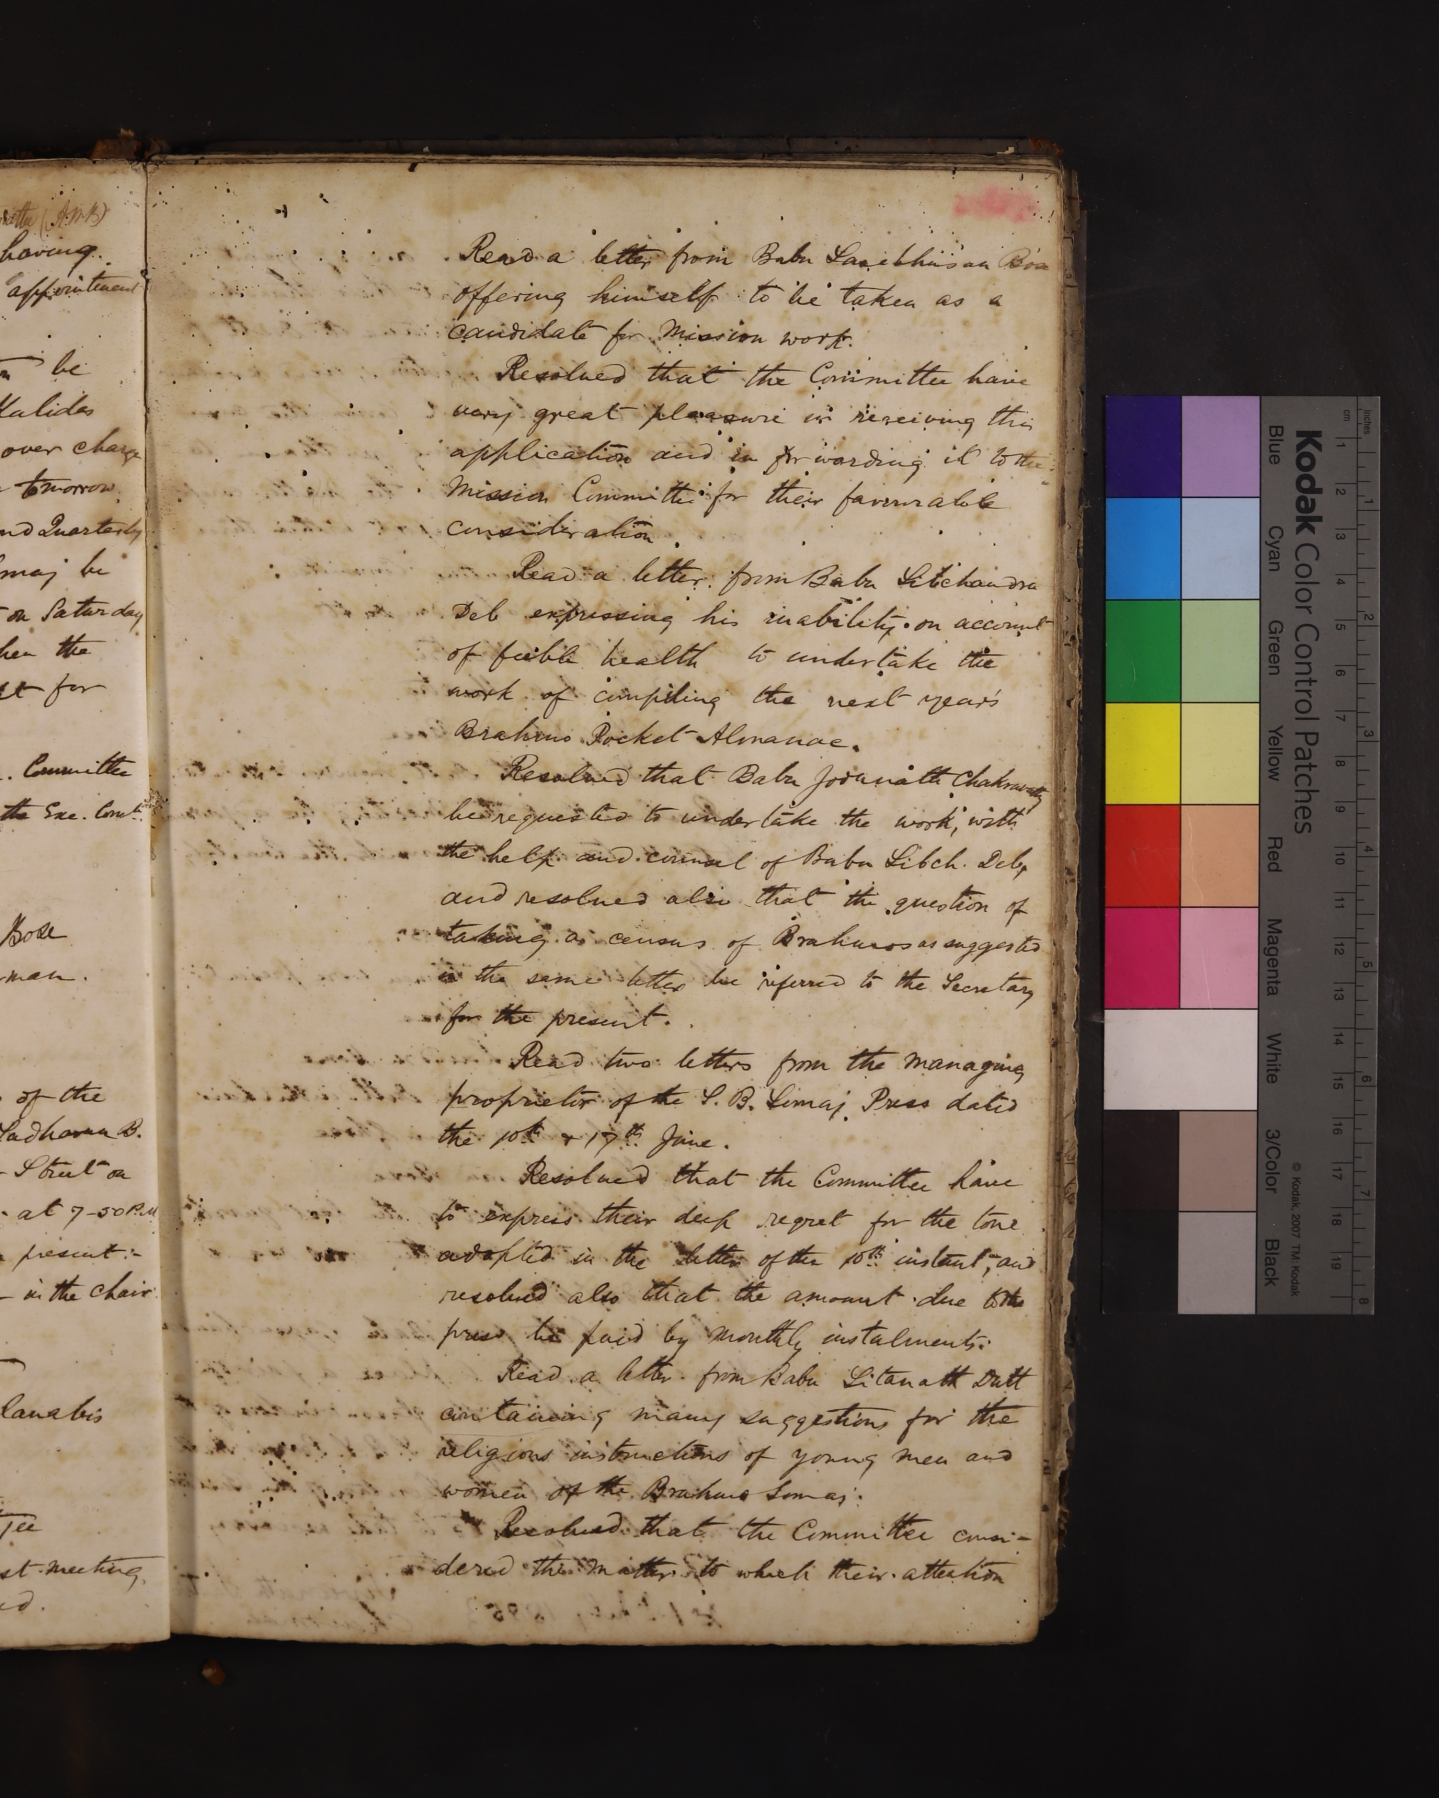 (A.M.B)
having
appointment
be
Kalidas
over charge
tomorrow
and Quarterly
may be
on Saturday
when the
for
Committee
the Exe. Comt.
Bose
man.
of the
Sadharan B.
Street on
at 7-50 P.M
present:-
in the chair
st meeting
Read a letter from Babu Sasibhusan Bose
offering himself to be taken as a
candidate for Mission work.
Resolved that the Committee have
very great pleasure in receiving this
application and in forwarding it to the
Mission Committee for their favourable
consideration.
Read a letter from Babu Sibchandra
Deb expressing his inability on account
of feeble health to undertake the
work of compiling the next year's
Brahmo Pocket Almanac.
Resolved that Babu Jodunath Chakravarty
be requested to undertake the work, with
the help and counsel of Babu Sibch. Deb,
and resolved also that the question of
taking a census of Brahmos as suggested
in the same letter be referred to the Secretary
for the present.
Read two letters from the managing
proprietor of the S. B. Somaj Press dated
the 10th & 17th June.
Resolved that the Committee have
to express their deep regret for the tone
adopted in the letter of the 10th instant, and
resolved also that the amount due to the
press be paid by monthly instalments.
Read a letter from Babu Sitanath Dutt
containing many suggestions for the
religious instructions of young men and
women of the Brahmo Somaj.
Resolved that the Committee consi-
dered the matter to which their attention
Kodak Color Control Patches
Blue
Cyan
Green
Yellow
Red
Magenta
White
3/Color
Black
© Kodak, 2007 TM Kodak
cm 1 2 3 4 5 6 7 8 9 10 11 12 13 14 15 16 17 18 19
inches 1 2 3 4 5 6 7 8